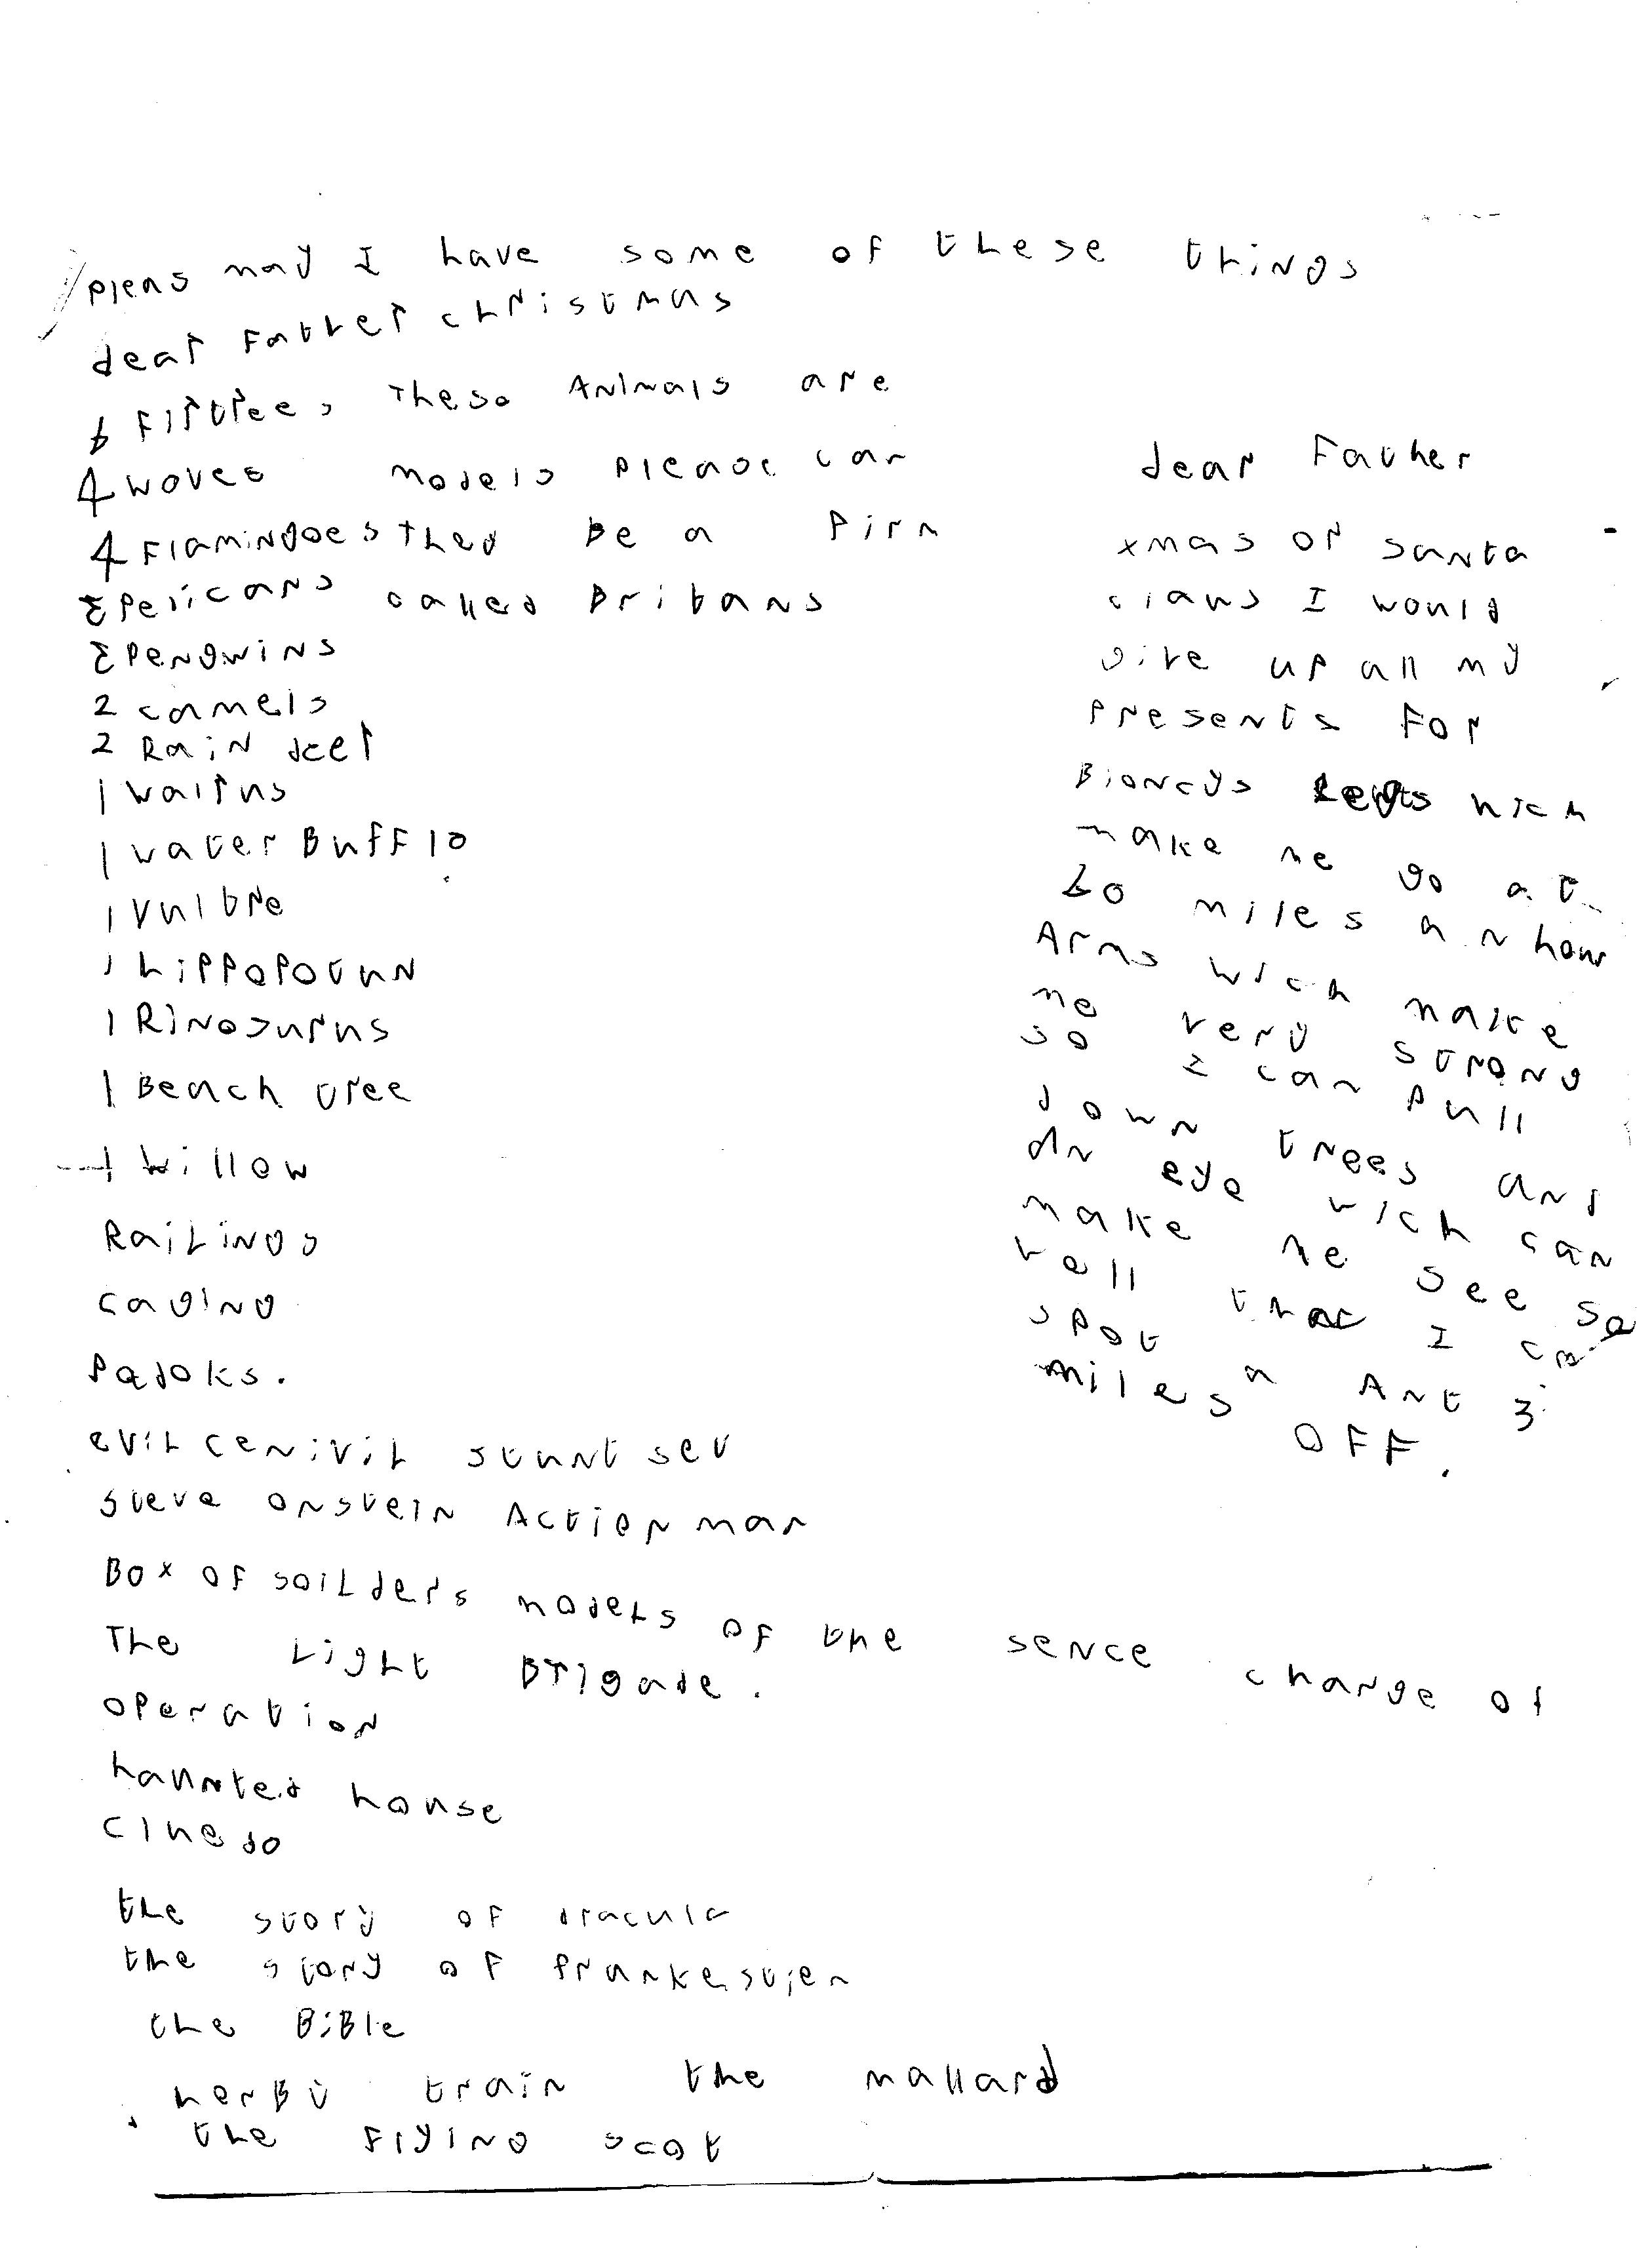 pleas may I have some of these things
dear Father christmas
6 Firtrees These Animals are
4 woves models please can
4 Flamingoes They Be a Firm
3 Pelicans called Britans
3 Pengwins
2 camels
2 Rain deer
1 walrus
1 water Bufflo
1 Vultre
1 hippopotun
1 Rinosurus
1 Beach tree
1 willow
Railings
caging
Padoks.
evil cenivil stunt set
Steve onstein Action man
Box of soilders models of the sence charge of
The Light Brigade.
operation
haunted house
cluedo
the story of dracula
the story of frankestien
the Bible
hornBy train the mallard
the Flying scot
dear Father
xmas or santa
claus I would
give up all my
presents For
Bioncys Legs wich
make me go at
60 miles an hour
Arms wich make
me very strong
so I can pull
down trees and
An eye wich can
make me see so
well that I can
spot a Ant 3
miles OFF.